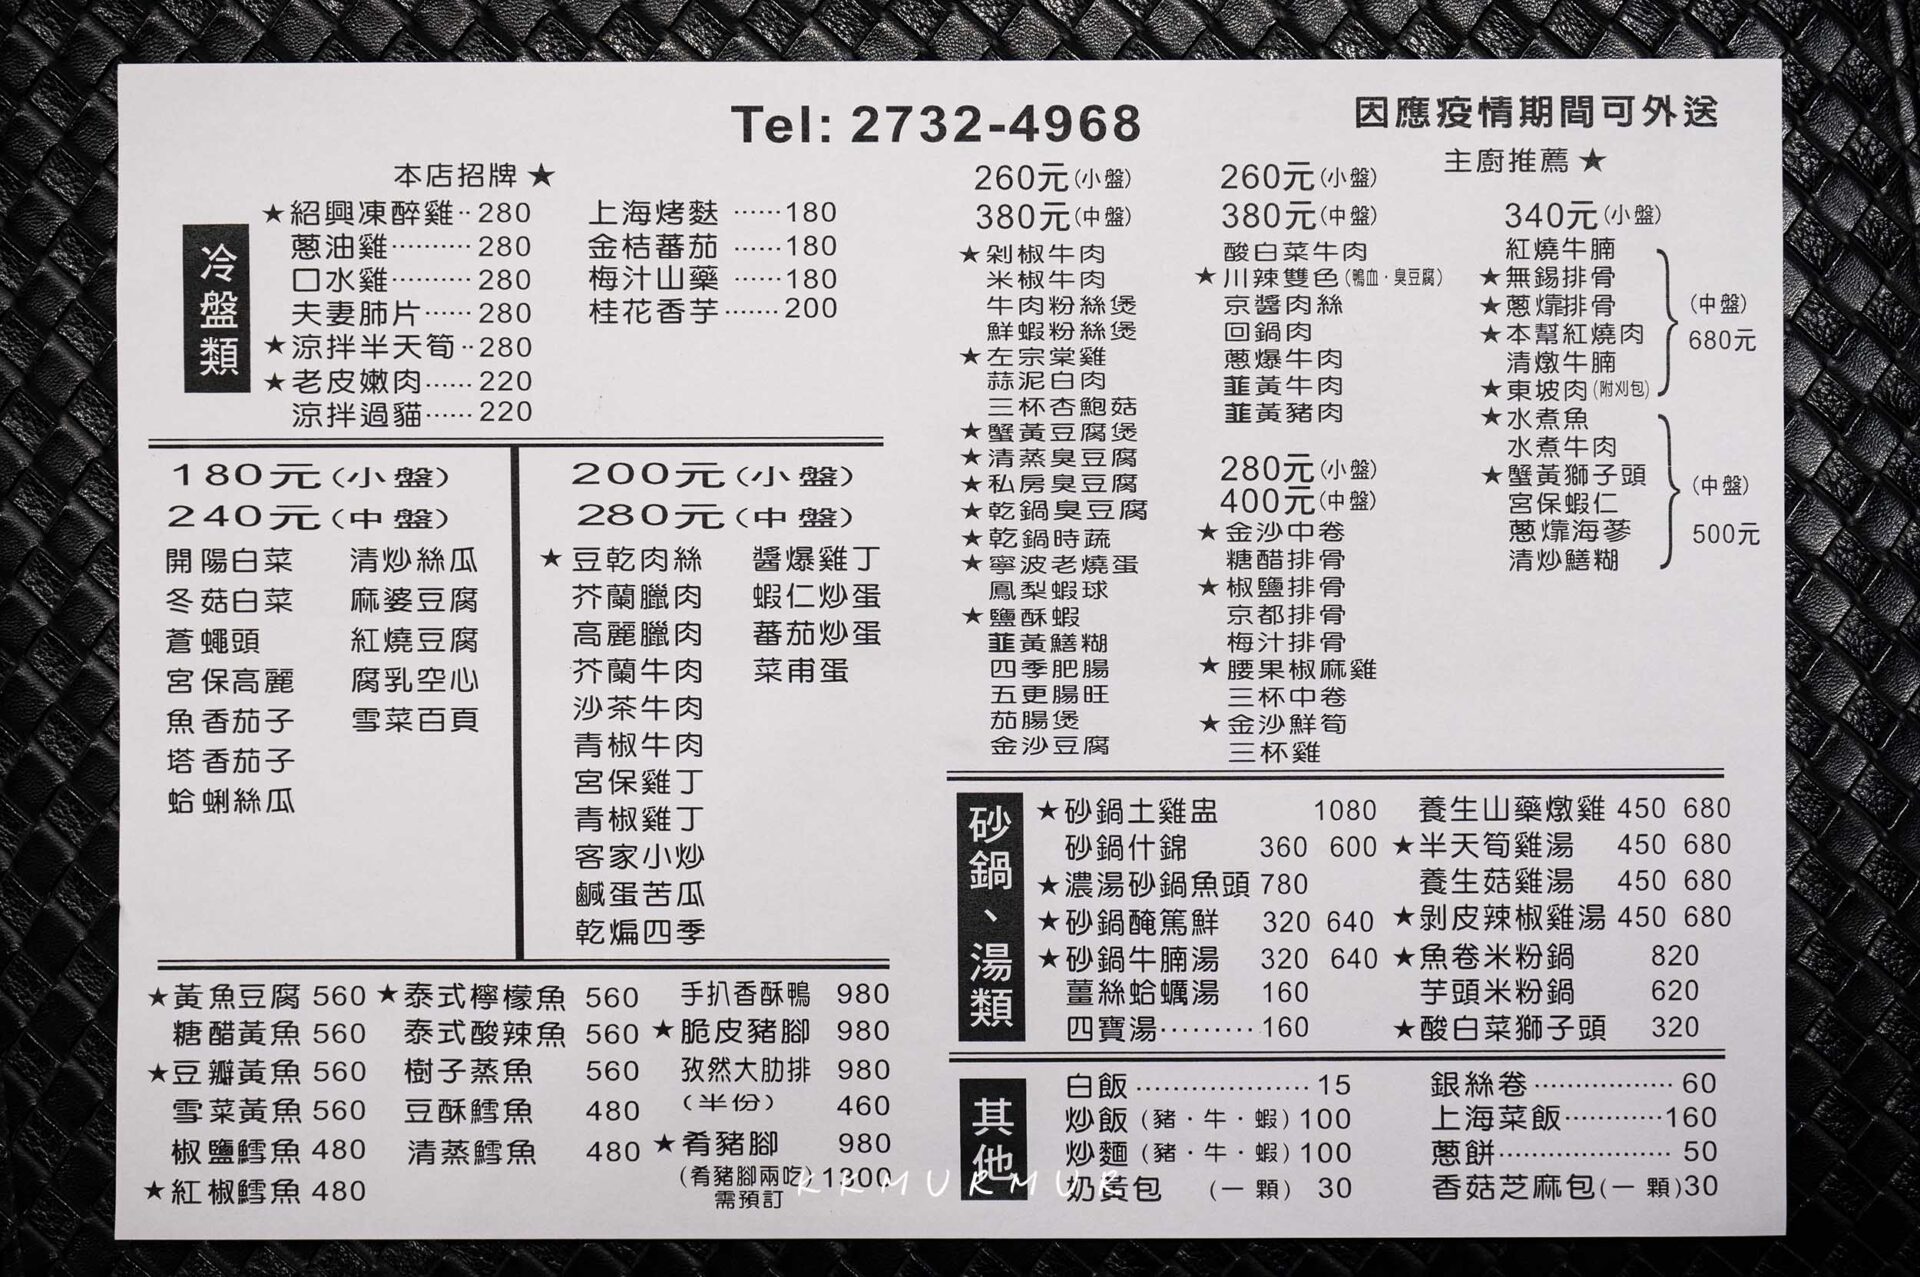 Tel: 2732-4968
因應疫情期間可外送
本店招牌 ★
主廚推薦 ★
冷盤類
★紹興凍醉雞‥280
蔥油雞………280
口水雞………280
夫妻肺片……280
★涼拌半天筍‥280
★老皮嫩肉……220
涼拌過貓……220
上海烤麩……180
金桔蕃茄……180
梅汁山藥……180
桂花香芋……200
180元(小盤)
240元(中盤)
開陽白菜
冬菇白菜
蒼蠅頭
宮保高麗
魚香茄子
塔香茄子
蛤蜊絲瓜
清炒絲瓜
麻婆豆腐
紅燒豆腐
腐乳空心
雪菜百頁
200元(小盤)
280元(中盤)
★豆乾肉絲
芥蘭臘肉
高麗臘肉
芥蘭牛肉
沙茶牛肉
青椒牛肉
宮保雞丁
青椒雞丁
客家小炒
鹹蛋苦瓜
乾煸四季
醬爆雞丁
蝦仁炒蛋
蕃茄炒蛋
菜甫蛋
★黃魚豆腐 560
糖醋黃魚 560
★豆瓣黃魚 560
雪菜黃魚 560
椒鹽鱈魚 480
★紅椒鱈魚 480
★泰式檸檬魚 560
泰式酸辣魚 560
樹子蒸魚 560
豆酥鱈魚 480
清蒸鱈魚 480
手扒香酥鴨 980
★脆皮豬腳 980
孜然大肋排 980
(半份) 460
★肴豬腳 980
(肴豬腳兩吃) 1300
需預訂
260元(小盤)
380元(中盤)
★剁椒牛肉
米椒牛肉
牛肉粉絲煲
鮮蝦粉絲煲
★左宗棠雞
蒜泥白肉
三杯杏鮑菇
★蟹黃豆腐煲
★清蒸臭豆腐
★私房臭豆腐
★乾鍋臭豆腐
★乾鍋時蔬
★寧波老燒蛋
鳳梨蝦球
★鹽酥蝦
韮黃鱔糊
四季肥腸
五更腸旺
茄腸煲
金沙豆腐
260元(小盤)
380元(中盤)
酸白菜牛肉
★川辣雙色(鴨血·臭豆腐)
京醬肉絲
回鍋肉
蔥爆牛肉
韮黃牛肉
韮黃豬肉
280元(小盤)
400元(中盤)
★金沙中卷
糖醋排骨
★椒鹽排骨
京都排骨
梅汁排骨
★腰果椒麻雞
三杯中卷
★金沙鮮筍
三杯雞
340元(小盤)
紅燒牛腩
★無錫排骨
★蔥㸆排骨
★本幫紅燒肉
清燉牛腩
★東坡肉(附刈包)
(中盤)
680元
★水煮魚
水煮牛肉
★蟹黃獅子頭
宮保蝦仁
蔥㸆海蔘
清炒鱔糊
(中盤)
500元
砂鍋、湯類
★砂鍋土雞盅 1080
砂鍋什錦 360 600
★濃湯砂鍋魚頭 780
★砂鍋醃篤鮮 320 640
★砂鍋牛腩湯 320 640
薑絲蛤蠣湯 160
四寶湯………160
養生山藥燉雞 450 680
★半天筍雞湯 450 680
養生菇雞湯 450 680
★剝皮辣椒雞湯 450 680
★魚卷米粉鍋 820
芋頭米粉鍋 620
★酸白菜獅子頭 320
其他
白飯………………15
炒飯(豬·牛·蝦)100
炒麵(豬·牛·蝦)100
奶黃包 (一顆) 30
銀絲卷……………60
上海菜飯…………160
蔥餅………………50
香菇芝麻包(一顆)30
KRMURMUR